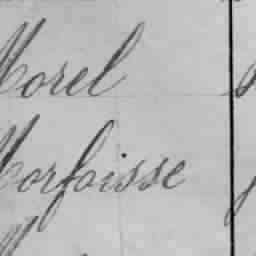 Morel
Morfoisse